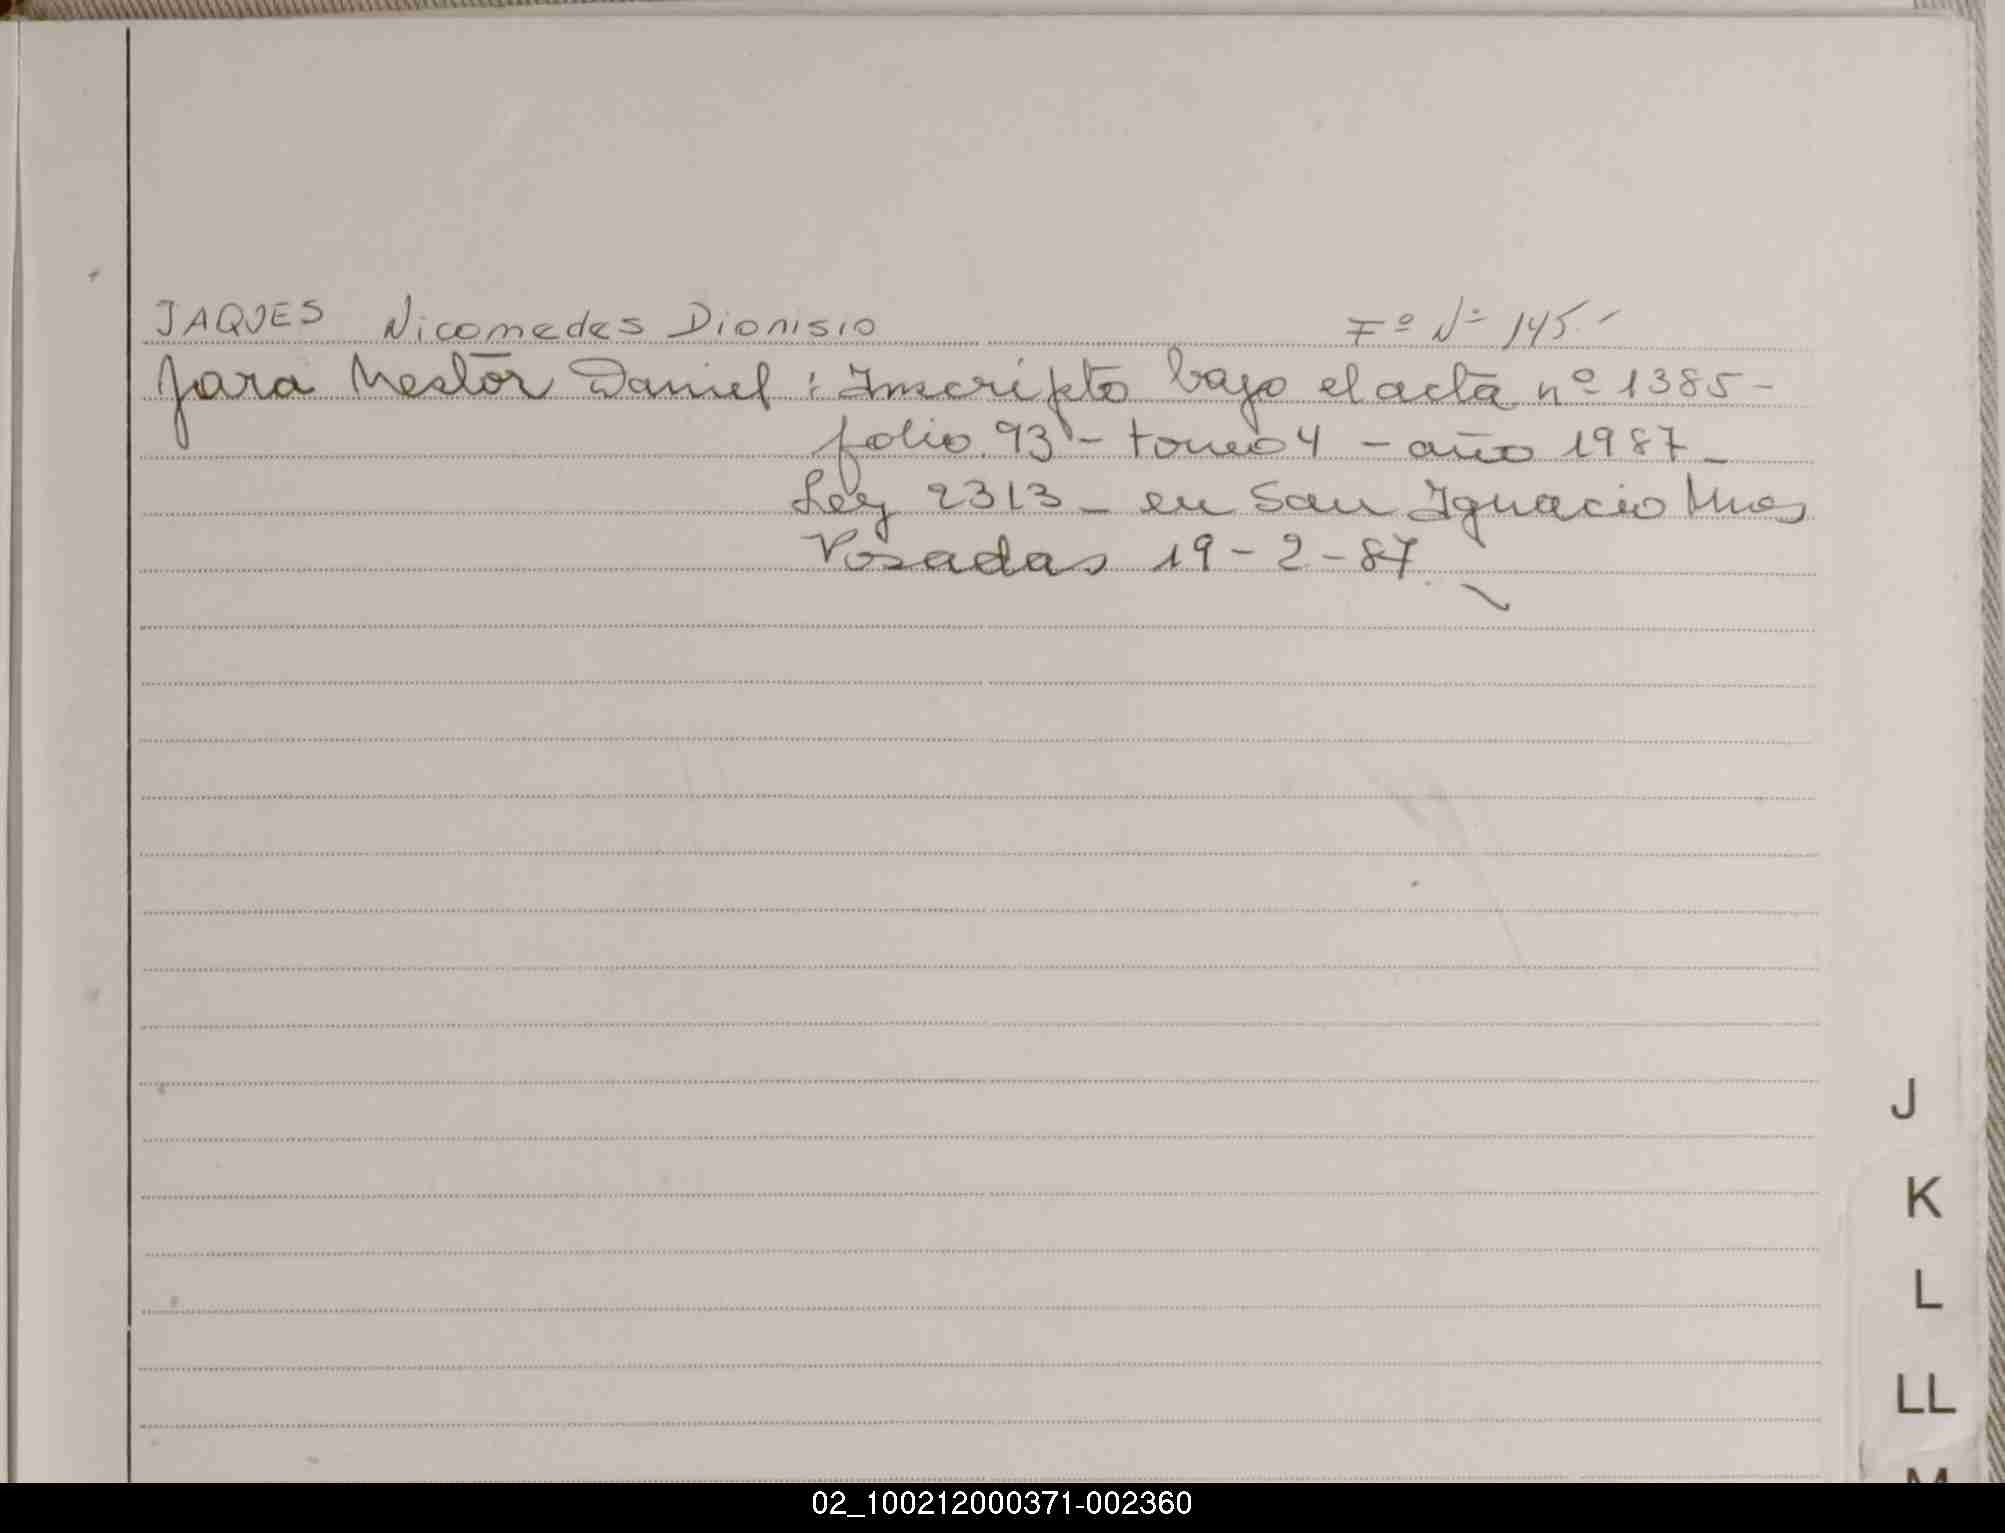 JAQUES Nicomedes Dionisio Fº Nº 145.-
Jara Nestor Daniel : Inscripto bajo el acta nº 1385-
folio. 93 - tomo 4 - año 1987-
Ley 2313 - en San Ignacio Mnes
Posadas 19-2-87
J
K
L
LL
M
02_100212000371-002360